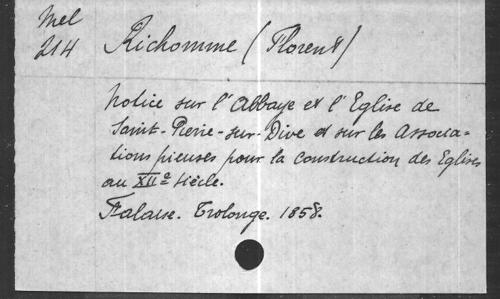 Mel
214
Richomme (Florent)
Notice sur l'Abbaye et l'Eglise de
Saint-Pierre-sur-Dive et sur les Associa-
tions pieuses pour la construction des Eglises
au XIIe siècle.
Falaise. Trolonge. 1858.